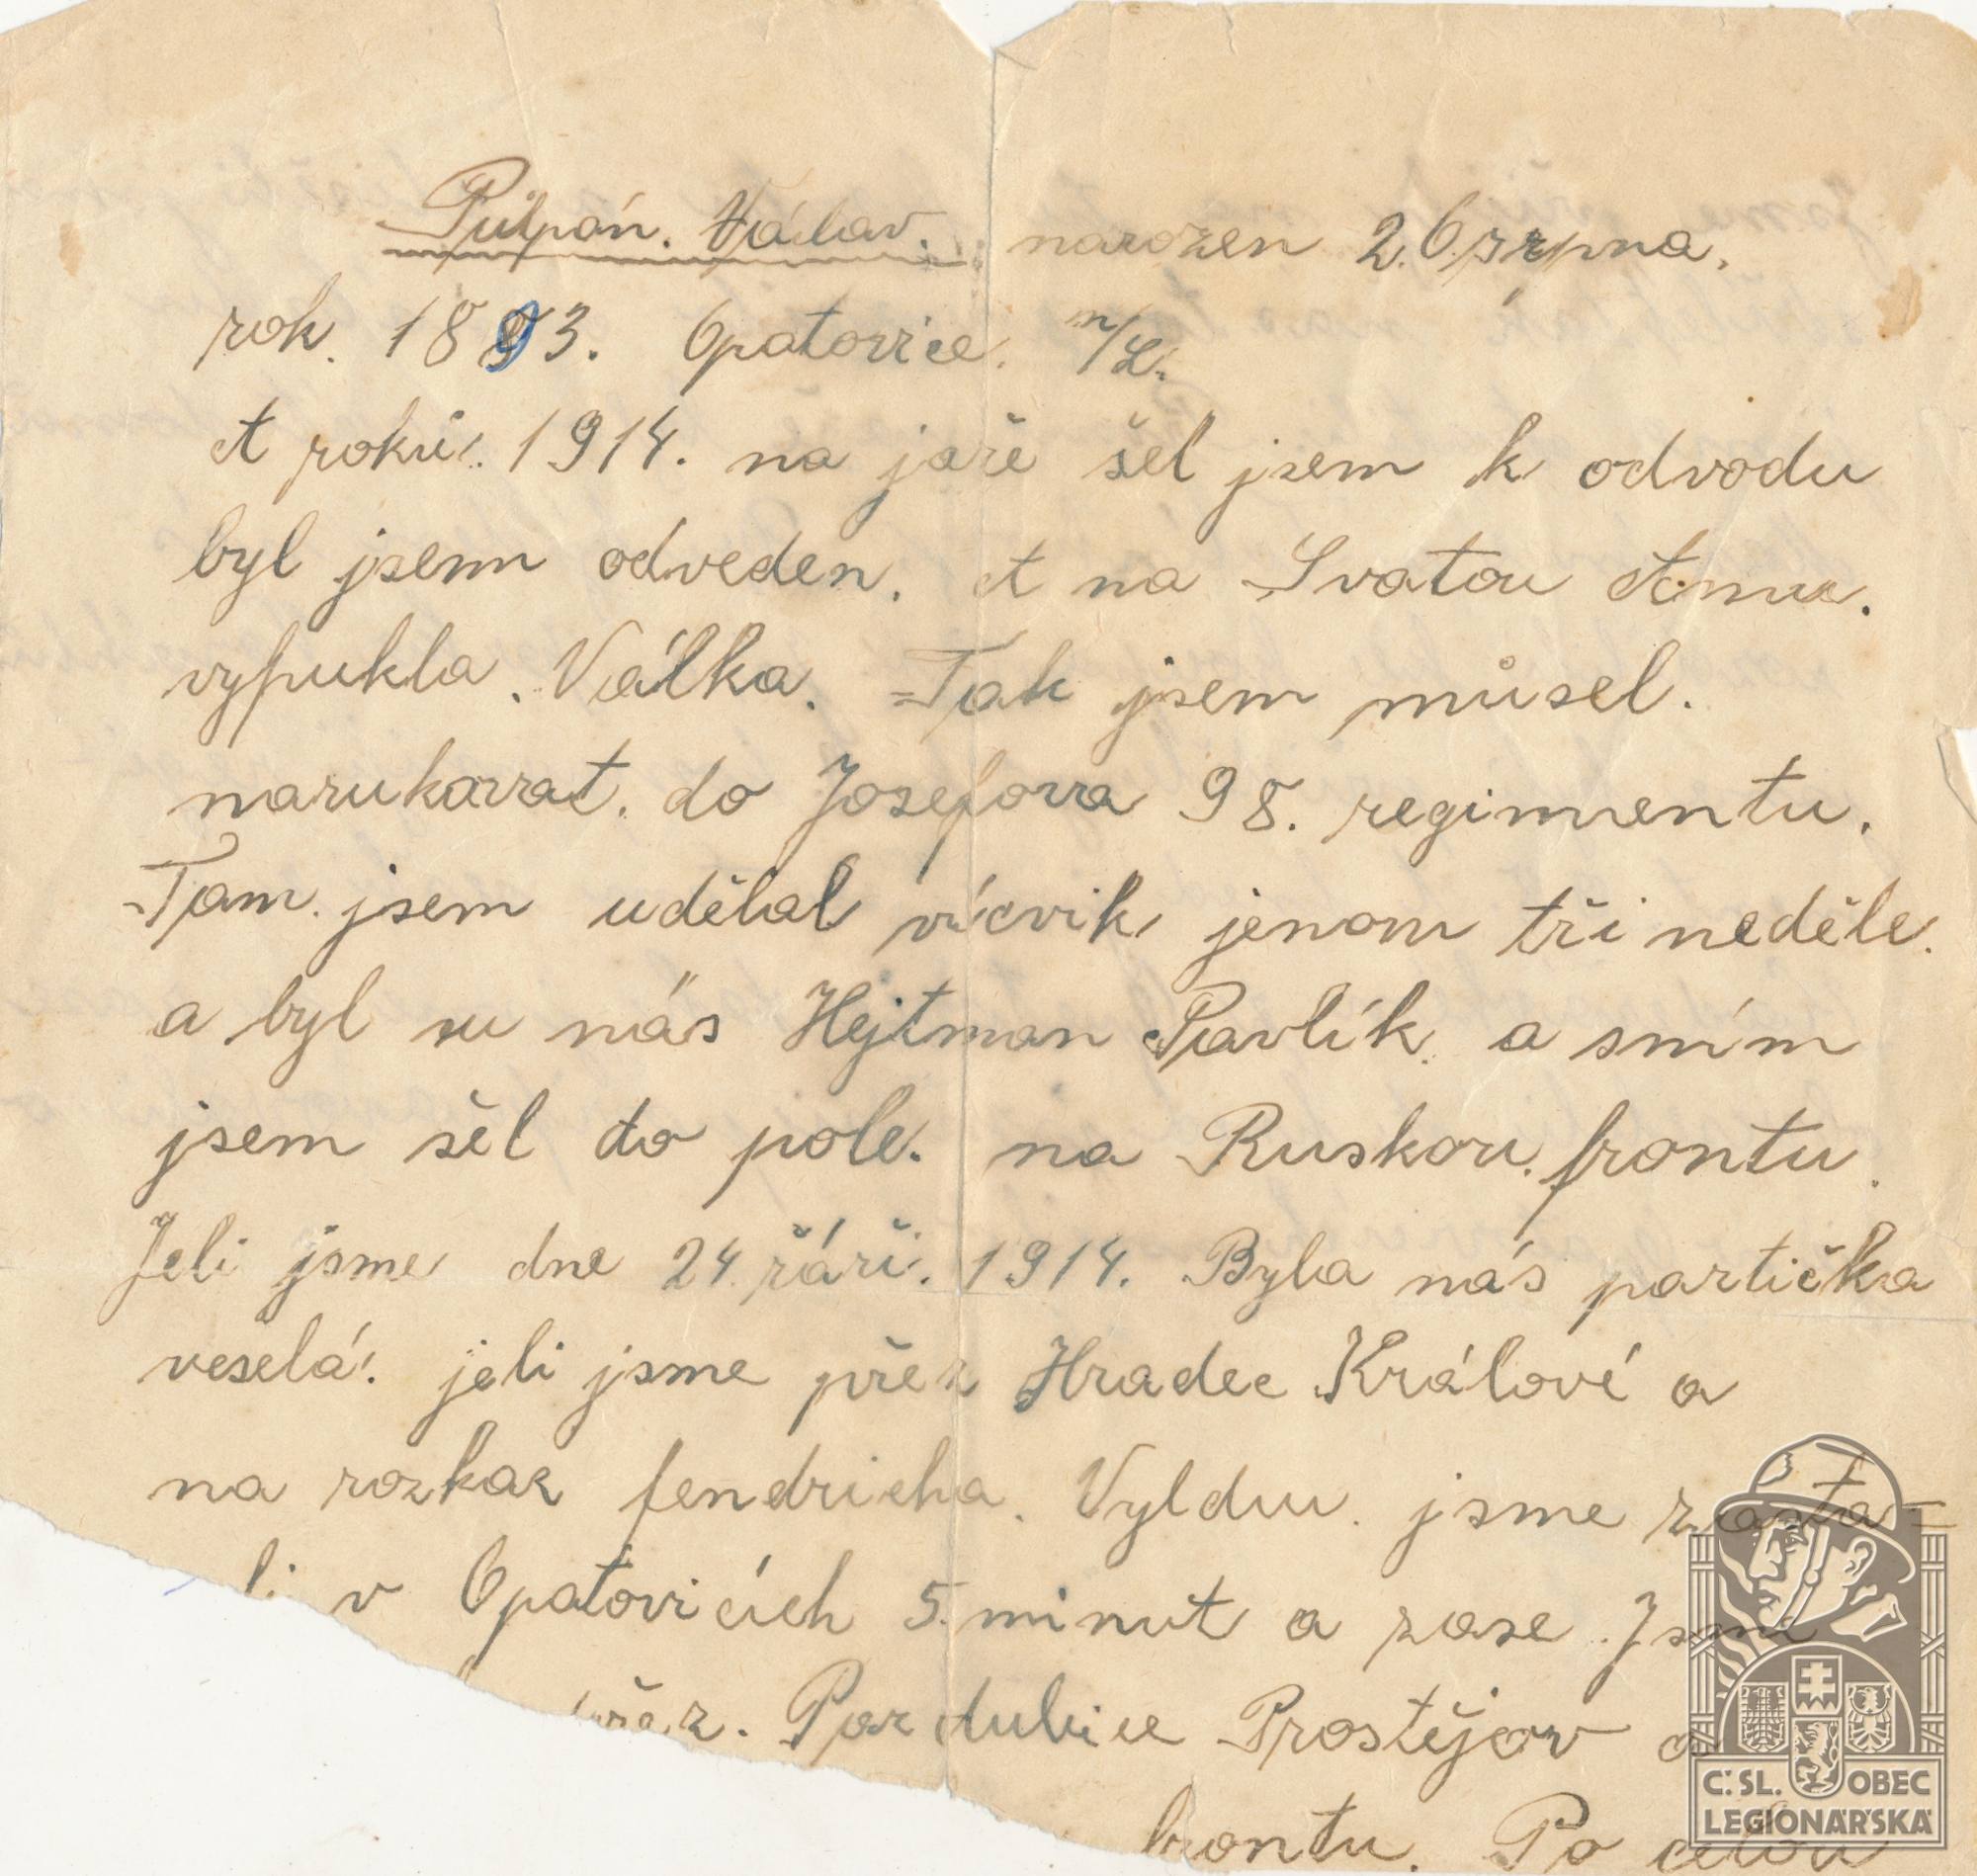 Půlpán. Václav. narozen 26 srpna.
rok. 1893. Opatovice. n/L.
A roku. 1914. na jaře šel jsem k odvodu
byl jsem odveden. A na Svatou Annu.
vypukla. Válka. Tak jsem můsel.
narukovat. do Josefova 98. regimentu.
Tam. jsem udělal vícvik jenom tři neděle.
a byl u nás Hejtman Pavlík. a sním
jsem šel do pole. na Ruskou. frontu.
Jeli jsme dne 24. řáří. 1914. Byla nás partička
veselá. jeli jsme přez Hradec Králové a
na rozkaz fendricha. Vyldu. jsme zasta-
li v Opatovicích 5. minut a zase. Jsme
přez. Pardubice Prostějov a
frontu. Po celou
Č. SL. OBEC
LEGIONÁŘSKÁ